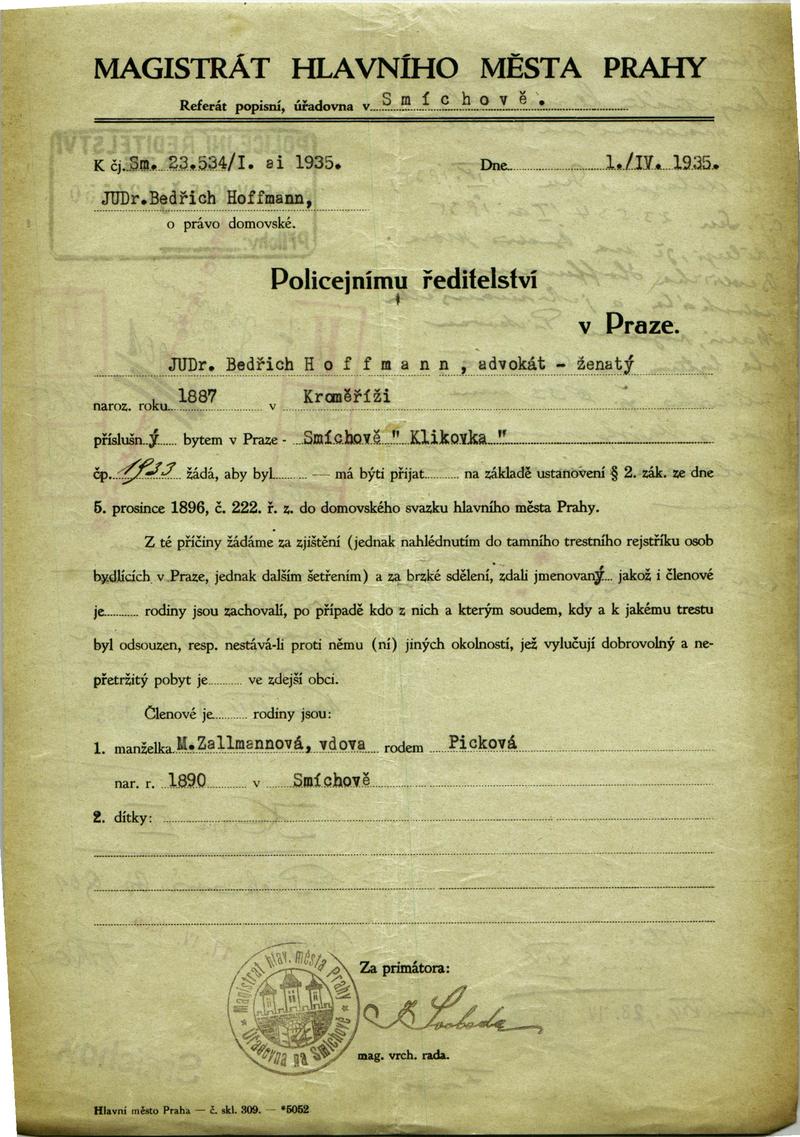 MAGISTRÁT HLAVNÍHO MĚSTA PRAHY
Referát popisní, úřadovna v Smíchově.
K čj. Sm. 23.534/I. ai 1935. Dne 1./IV. 1935.
JUDr.Bedřich Hoffmann,
o právo domovské.
Policejnímu ředitelství
v Praze.
JUDr. Bedřich Hoffmann, advokát - ženatý
naroz. roku 1887 v Kroměříži
příslušný bytem v Praze - Smíchově " Klikovka "
čp. 1933 žádá, aby byl — má býti přijat na základě ustanovení § 2. zák. ze dne
5. prosince 1896, č. 222. ř. z. do domovského svazku hlavního města Prahy.
Z té příčiny žádáme za zjištění (jednak nahlédnutím do tamního trestního rejstříku osob
bydlících v Praze, jednak dalším šetřením) a za brzké sdělení, zdali jmenovaný jakož i členové
je rodiny jsou zachovalí, po případě kdo z nich a kterým soudem, kdy a k jakému trestu
byl odsouzen, resp. nestává-li proti němu (ní) jiných okolností, jež vylučují dobrovolný a ne-
přetržitý pobyt je ve zdejší obci.
Členové je rodiny jsou:
1. manželka M.Zallmannová, vdova rodem Picková
nar. r. 1890 v Smíchově
2. dítky:
Magistrát hlav. města Prahy
Úřadovna na Smíchově
Za primátora:
Svoboda
mag. vrch. rada.
Hlavní město Praha — č. skl. 309. — *5052